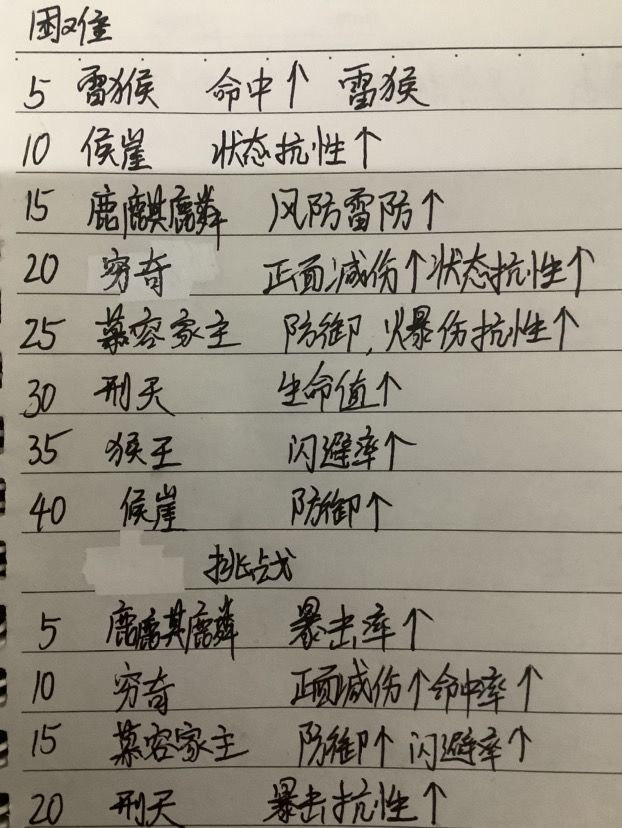 困难
5 雷猴 命中↑ 雷猴
10 侯崖 状态抗性↑
15 鹿麒麟 风防雷防↑
20 穷奇 正面减伤↑状态抗性↑
25 慕容家主 防御,爆伤抗性↑
30 刑天 生命值↑
35 猴王 闪避率↑
40 候崖 防御↑
挑战
5 鹿麒麟 暴击率↑
10 穷奇 正面减伤↑命中率↑
15 慕容家主 防御↑ 闪避率↑
20 刑天 暴击抗性↑